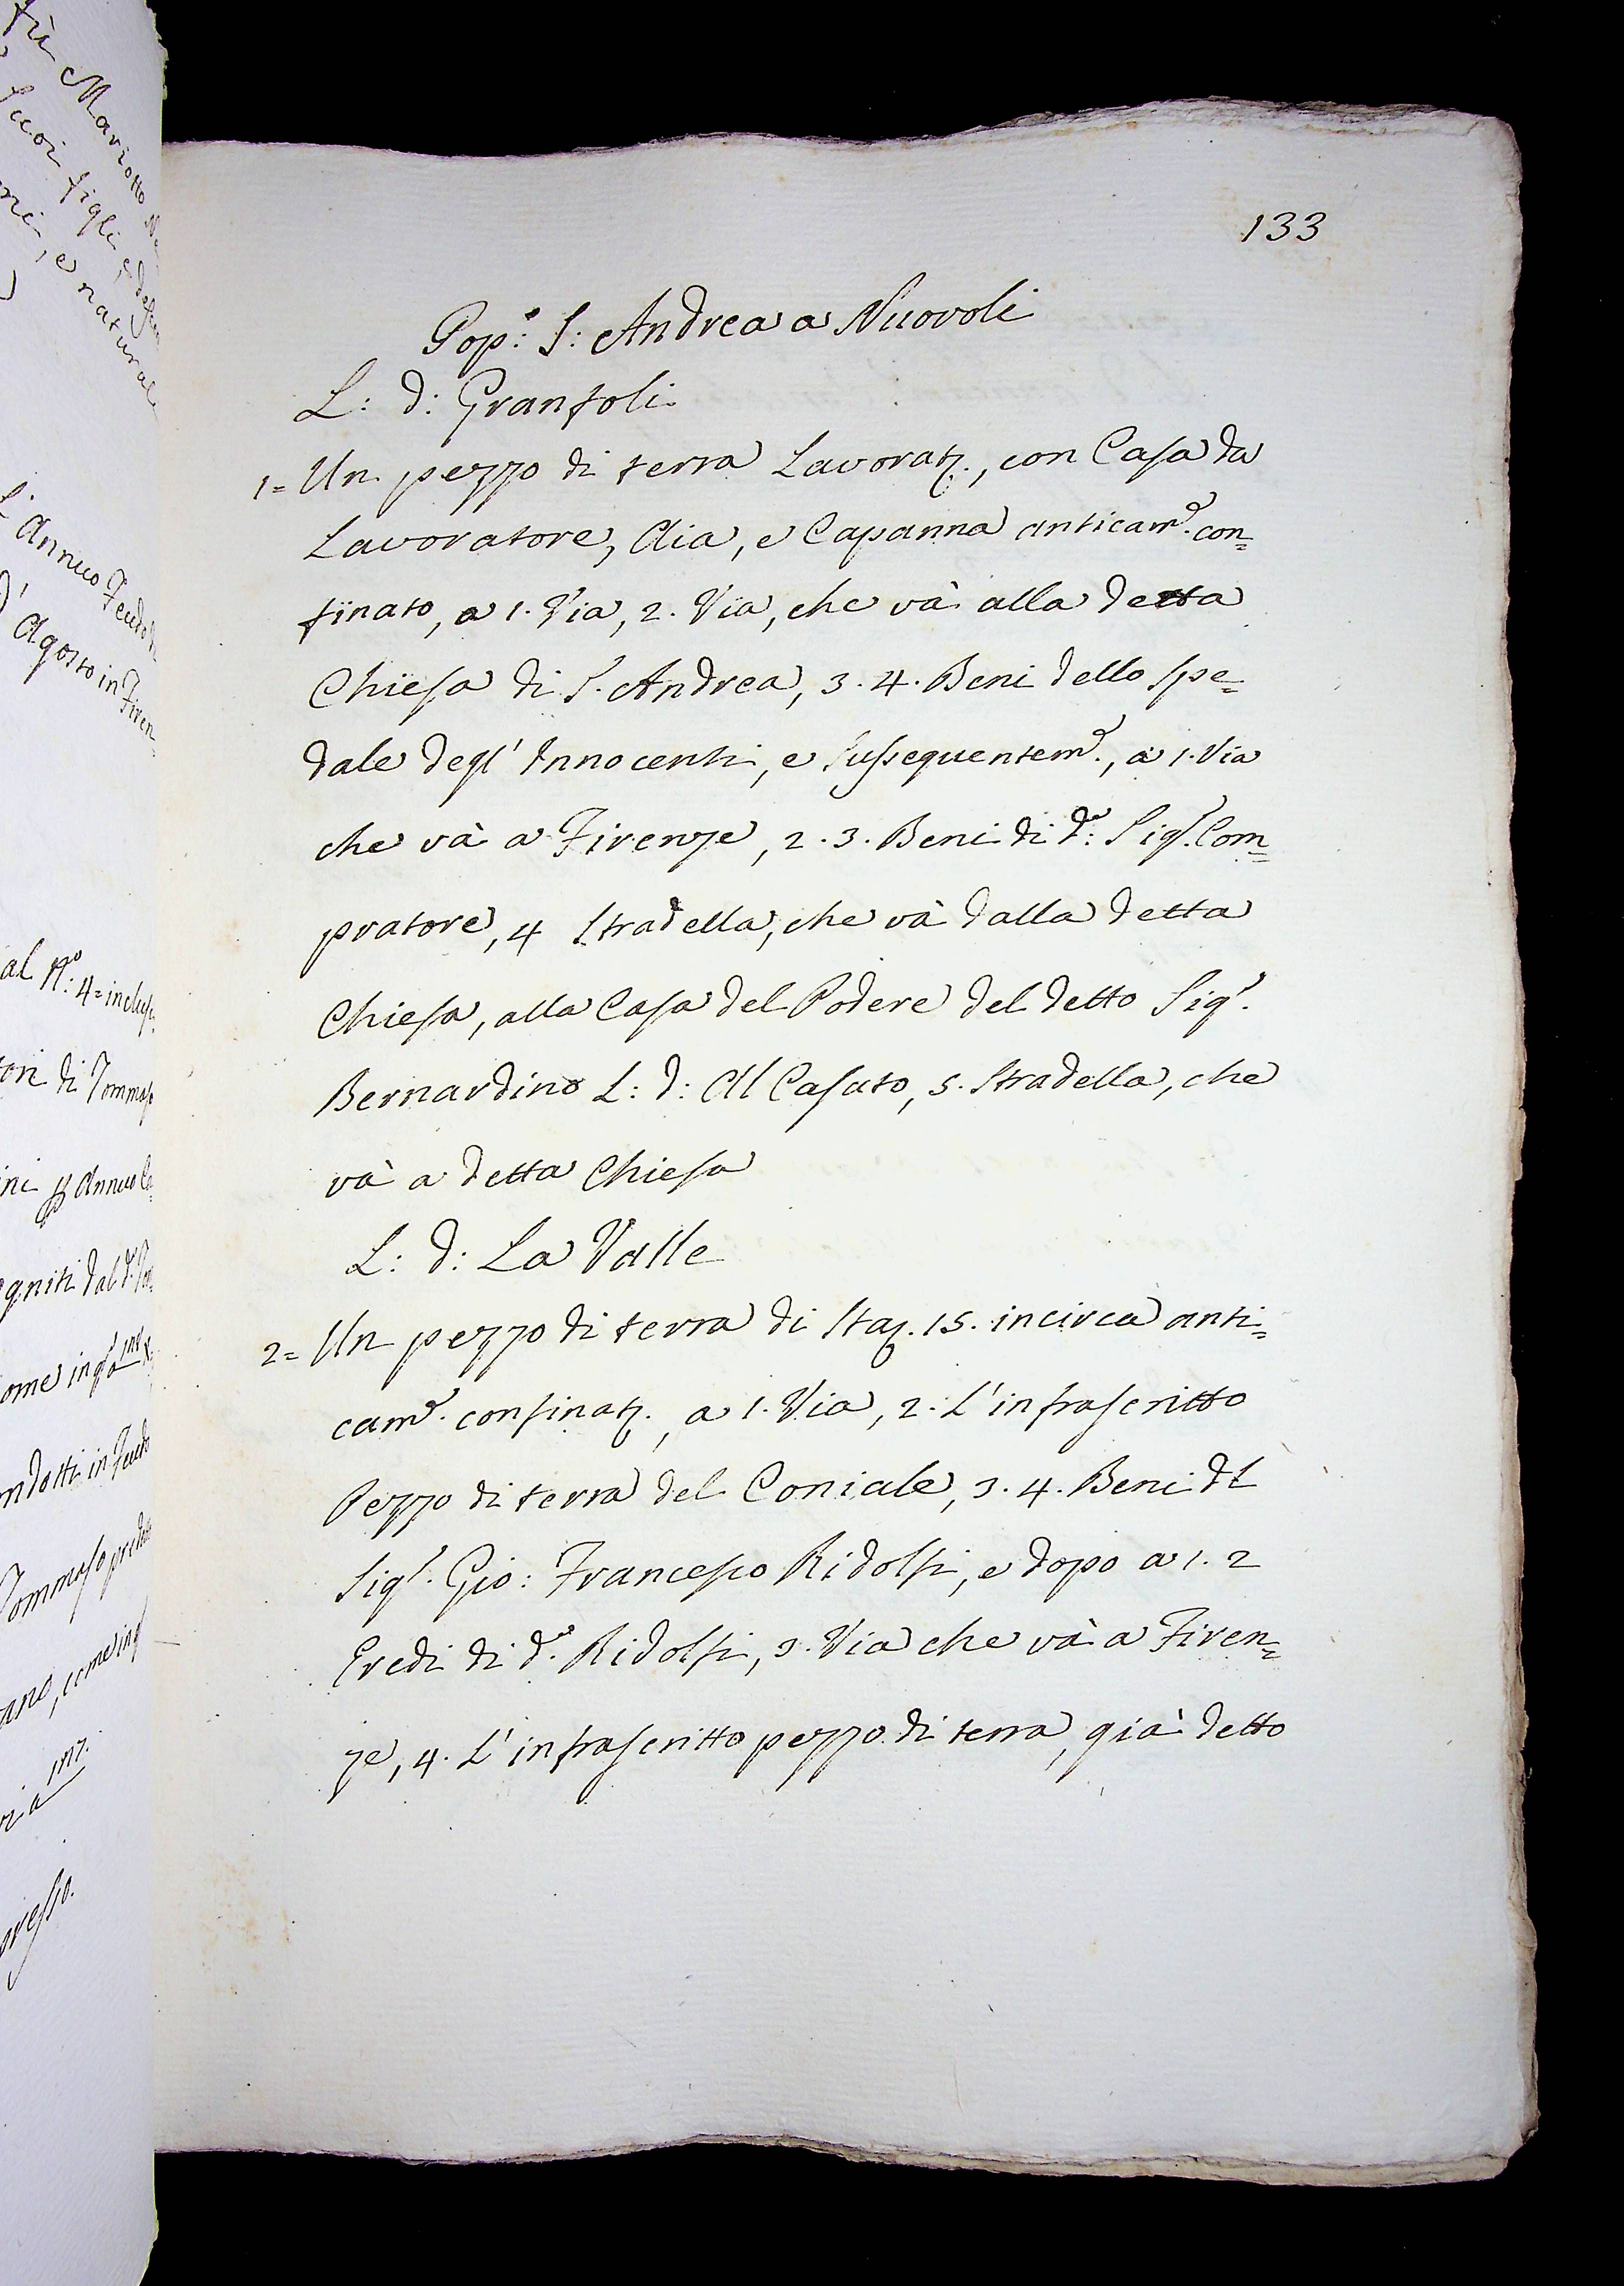 fù Mariotto
suoi figli, e
, e naturale
Annuo Feudo
d'Agosto in Firen
al N.º: 4= inclus
di Tommaso
Annuo
in Feudo
Tommaso
, come in
133
Pop.º: S: Andrea a Nuovoli
L: d: Granfoli
1= Un pezzo di terra Lavorat., con Casa da
Lavoratore, Aia, e Capanna anticam.e con=
finato, a 1. Via, 2. Via, che và alla detta
Chiesa di S. Andrea, 3. 4. Beni dello Spe=
dale degl' Innocenti, e Sussequentem.e, a 1. Via
che và a Firenze, 2. 3. Beni di d.º: Sig.r Com=
pratore, 4 Stradella, che và dalla detta
Chiesa, alla Casa del Podere del detto Sig.r
Bernardino L: d: Al Casato, 5. Stradella, che
và a detta Chiesa
L: d: La Valle
2= Un pezzo di terra di Sta. 15. incirca anti=
cam.e confinat., a 1. Via, 2. L'infrascritto
Pezzo di terra del Coniale, 3. 4. Beni dl
Sig.r Gio: Francesco Ridolfi, e dopo a 1. 2
Eredi di d.º Ridolfi, 3. Via che và a Firen=
ze, 4. L'infrascritto pezzo di terra, già detto